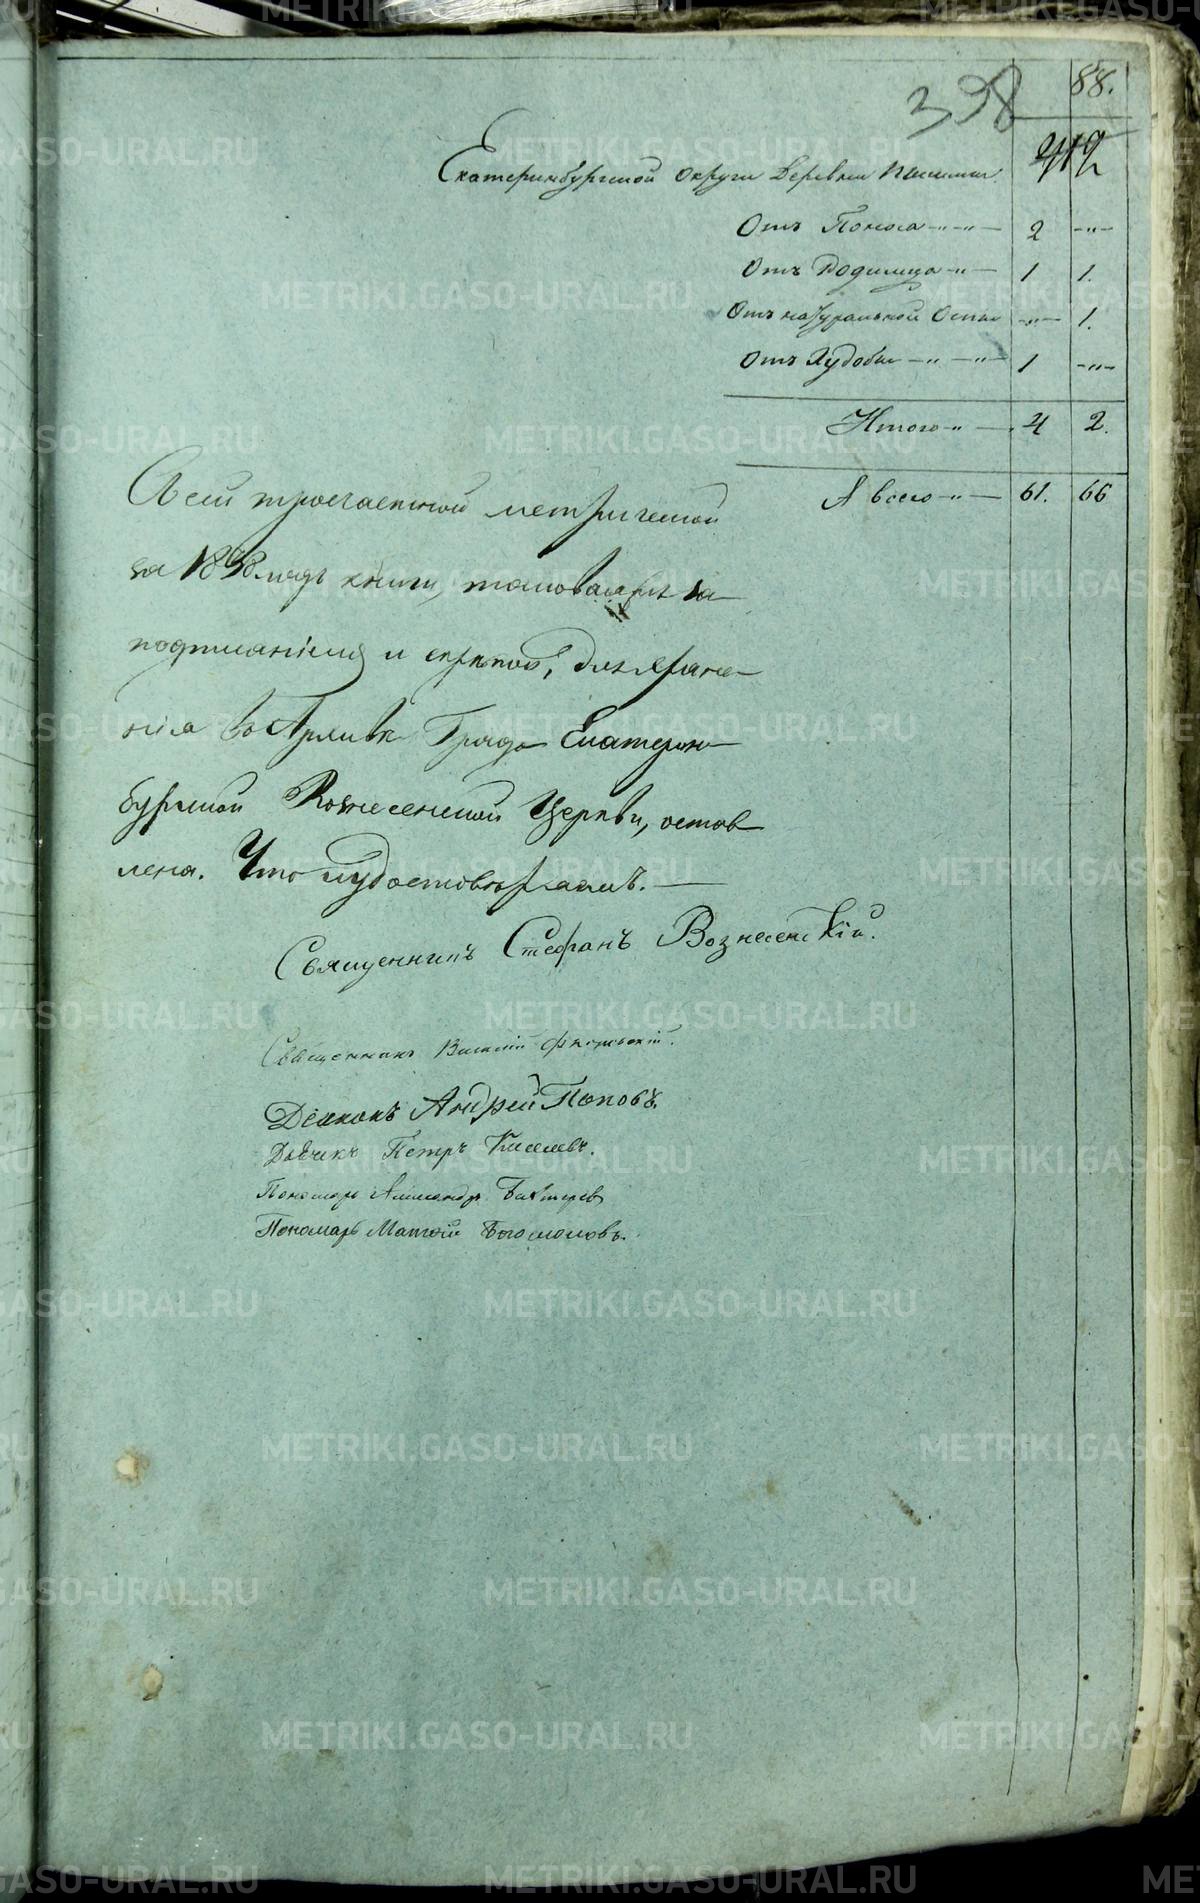 88.
398
412
Екатеринбургской округи Деревни Пышмы
Отъ Поноса — " — " — 2 — " —
Отъ Родимца — " — 1 1.
Отъ натуральной Оспы — " — 1.
Отъ Худобы — " — " — 1 — " —
Итого — " — 4 2.
А всего — " — 61. 66
Сей троечастной метрической
за 1838 годъ книги, таковая же за
подписаніемъ и скрепой, для хране-
нія въ Архиве Градо Екатерин-
бургской Вознесенской Церкви, остав
лена. Что и удостоверяемъ. —
Священникъ Стефанъ Вознесенскій.
Священникъ Василій
Діаконъ Андрей Поповъ.
Дьячекъ Петръ Киселевъ.
Пономарь Александръ
Пономарь Матѳій Богомоловъ.
METRIKI.GASO-URAL.RU